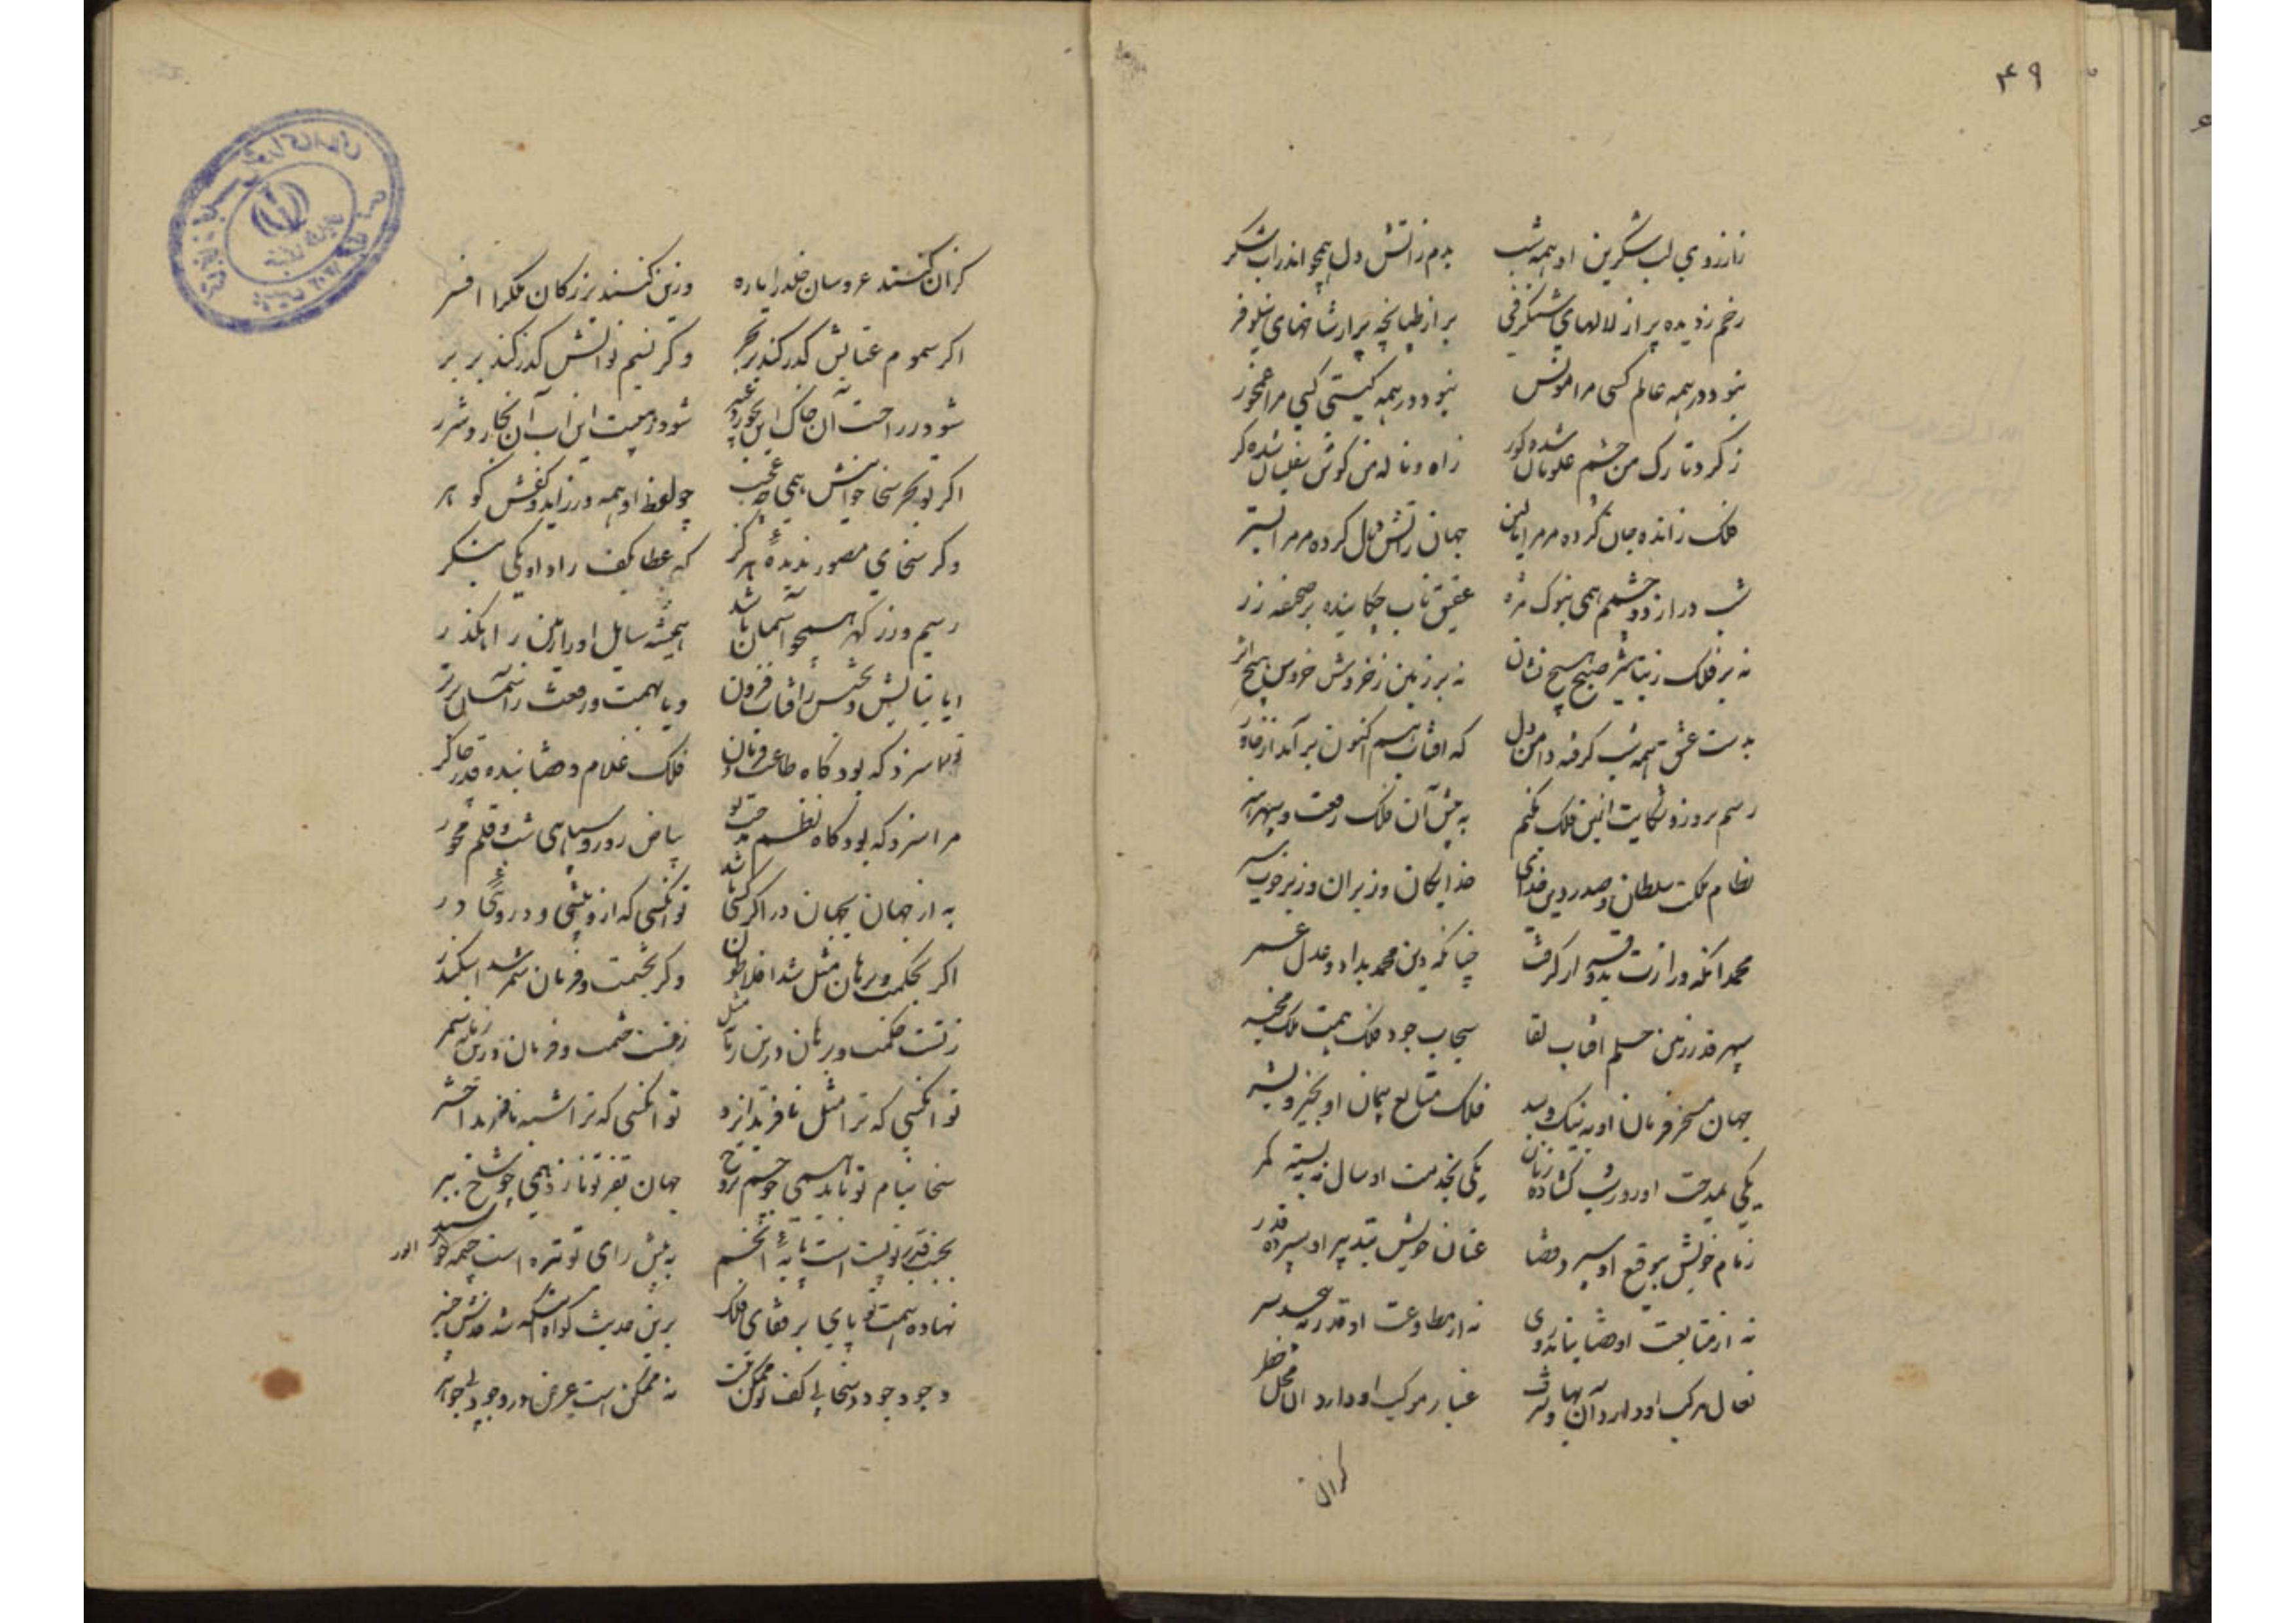 ۴۹
زارزوی لب شکرین او همه شب بدم زاتش دل همچو اندر اب شکر
رخم ز دیده پر از لالهای شنکرفی بر از طپانچه پر از شاخهای نیلوفر
نبود در همه عالم کسی مرا مونس نبود در همه کیتی کسی مرا غمخور
ز کرد تارک من چشم علویان شده کور ز اه و ناله من کوش سفلیان شده کر
فلک ز انده جان کرده مر مرا بالین جهان ز اتش دل کرده مر مرا بستر
شب دراز دو چشمم همی بنوک مژه عقیق ناب چکاینده بر صحیفه زر
نه بر فلک ز تباشیر صبح هیچ نشان نه بر زمین ز خروش خروس هیچ اثر
بدست عشق همه شب کرفته دامن دل که افتاب هم اکنون بر آمد از خاور
رسم بروز و شکایت ازین فلک بکنم به پیش آن فلک رفعت و سپهر
نظام ملکت سلطان و صدر دین خدای خدایکان وزیران وزیر خوب سیر
محمد انکه وزارت بدو قرار کرفت چنانکه دین محمد بداد و عدل عمر
سپهر قدر زمین حلم افتاب لقا سحاب جود فلک همت ملک مخبر
جهان مسخر فرمان او به نیک و ببد فلک متابع پیمان او بخیر و بشر
یکی بمدحت او روز و شب کشاده زبان یکی بخدمت او سال و مه ببسته کمر
زمام خویش بتوقیع او سپرد قضا عنان خویش بتدبیر او سپرده قدر
نه از متابعت او قضا بتابد روی نه از مطاوعت او قدر بپیچد سر
نعال مرکب او دارد آن بها و شرف غبار مرکب او دارد ان محل و خطر
کزان
کزان کنند عروسان خلد را یاره وزین کنند بزرکان ملکرا افسر
اکر سموم عتابش کذر کند بر بحر وکر نسیم نوالش کذر کند بر بر
شود ز راحت آن خاک این بخور و عبیر شود ز هیبت این اب آن بخار و شرر
اکر تو بحر سخا خوانیش همی چه عجب چو لفظ او همه در زاید و کفش کوهر
وکر سخای مصور ندیده هرکز که عطا بکف راد او یکی بنکر
رسیم و زر که همچو آسمان باشد همیشه سایل او را زمین راهکذر
ایا بتابش و بخشش ز افتاب فزون ویا بهمت و رفعت ز آسمان برتر
ترا سزد که بود کاه طاعت و فرمان فلک غلام و قضا بنده و قدر چاکر
مرا سزد که بود کاه نظم مدحت تو بیاض روز و سیاهی شب و قلم محور
به از جهان بجهان در اکر کسی باشد تو انکسی که ازو بیشی و دروئی در
اکر بحکمت و برهان مثل شد افلاطون وکر بحشمت و فرمان سمر شد اسکندر
ز تست حکمت و برهان درین زمانه مثل ز تست حشمت و فرمان درین زمانه سمر
تو انکسی که ترا مثل نافرید ایزد تو انکسی که ترا شبه نافرید اختر
سخا بنام تو نازد همی چو جسم بروح جهان بفر تو نازد همی چو شاخ ببر
بجنب قدر تو پست است پایه انجم به پیش رای تو تیره است چشمه خور انور
نهاده همت تو پای بر قفای فلک برین حدیث کواه
وجود جود و سخا بی کف تو ممکن نیست نه ممکن است عرض در وجود بی جوهر